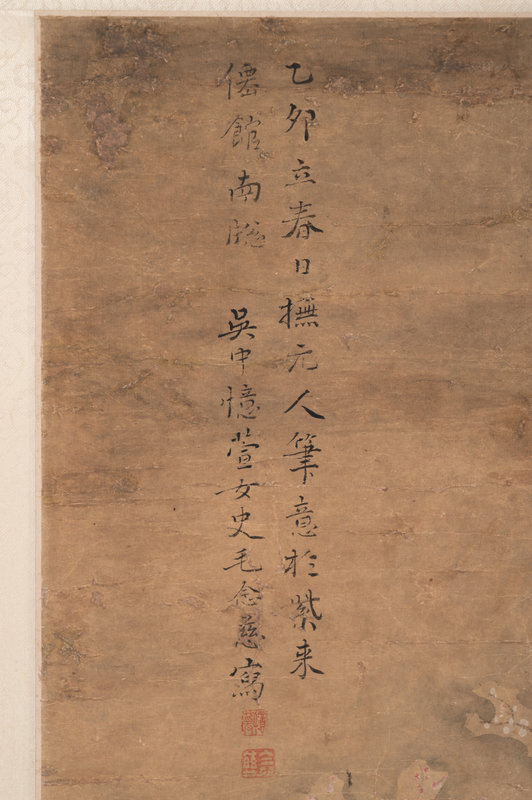 乙夘立春日撫元人筆意於紫来
僊館南牎 吳中憶萱女史毛念慈寫